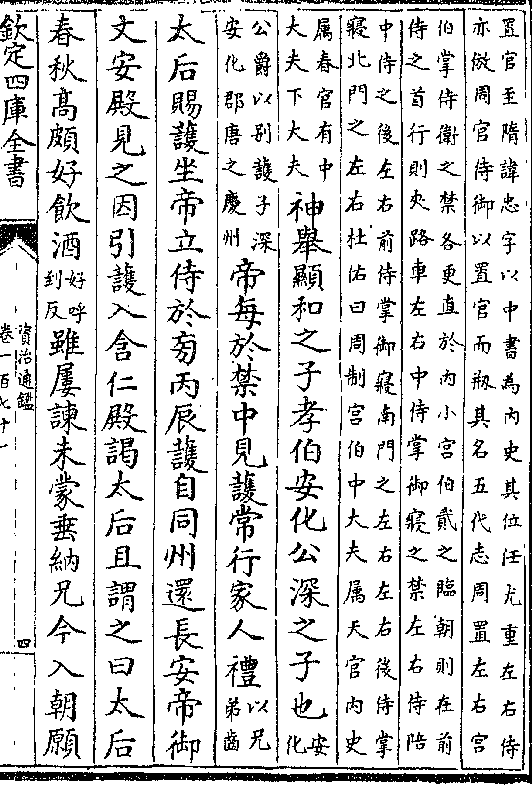 置官至隋諱忠字以中書為内史其位任尤重左右侍
亦倣周官侍御以置官而剏其名五代志周置左右宫
伯掌侍衛之禁各更直於内小宫伯貳之臨朝則在前
侍之首行則夾路車左右中侍掌御寢之禁左右侍陪
中侍之後左右前侍掌御寢南門之左右左右後侍掌
寢北門之左右杜佑曰周制宫伯中大夫属天官内史
属春官有中
大夫下大夫
神舉顯和之子孝伯安化公深之子也
安
化
公爵以别護子深
安化郡唐之慶州
帝每於禁中見護常行家人禮
以兄
弟齒
太后賜護坐帝立侍於旁丙辰護自同州還長安帝御
文安殿見之因引護入含仁殿謁太后且謂之曰太后
春秋髙頗好飲酒
好呼
到反
雖屢諫未蒙垂納兄今入朝願
欽定四庫全書
資治通鑑
卷一百七十一
四